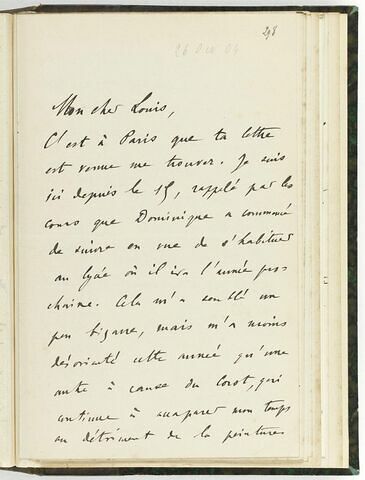 298
26 Dec 04
Mon cher Louis,
C'est à Paris que ta lettre
est venue me trouver. Je suis
ici depuis le 15, rappelé par les
cours que Dominique a commencé
de suivre en vue de s'habituer
au lycée où il ira l'année pro-
chaine. Cela m'a semblé un
peu bizarre, mais m'a moins
désorienté cette année qu'une
autre à cause du Corot, qui
continue à accaparer mon temps
au détriment de la peinture